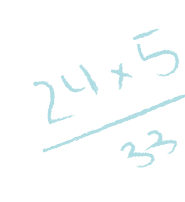 24 x 5
33